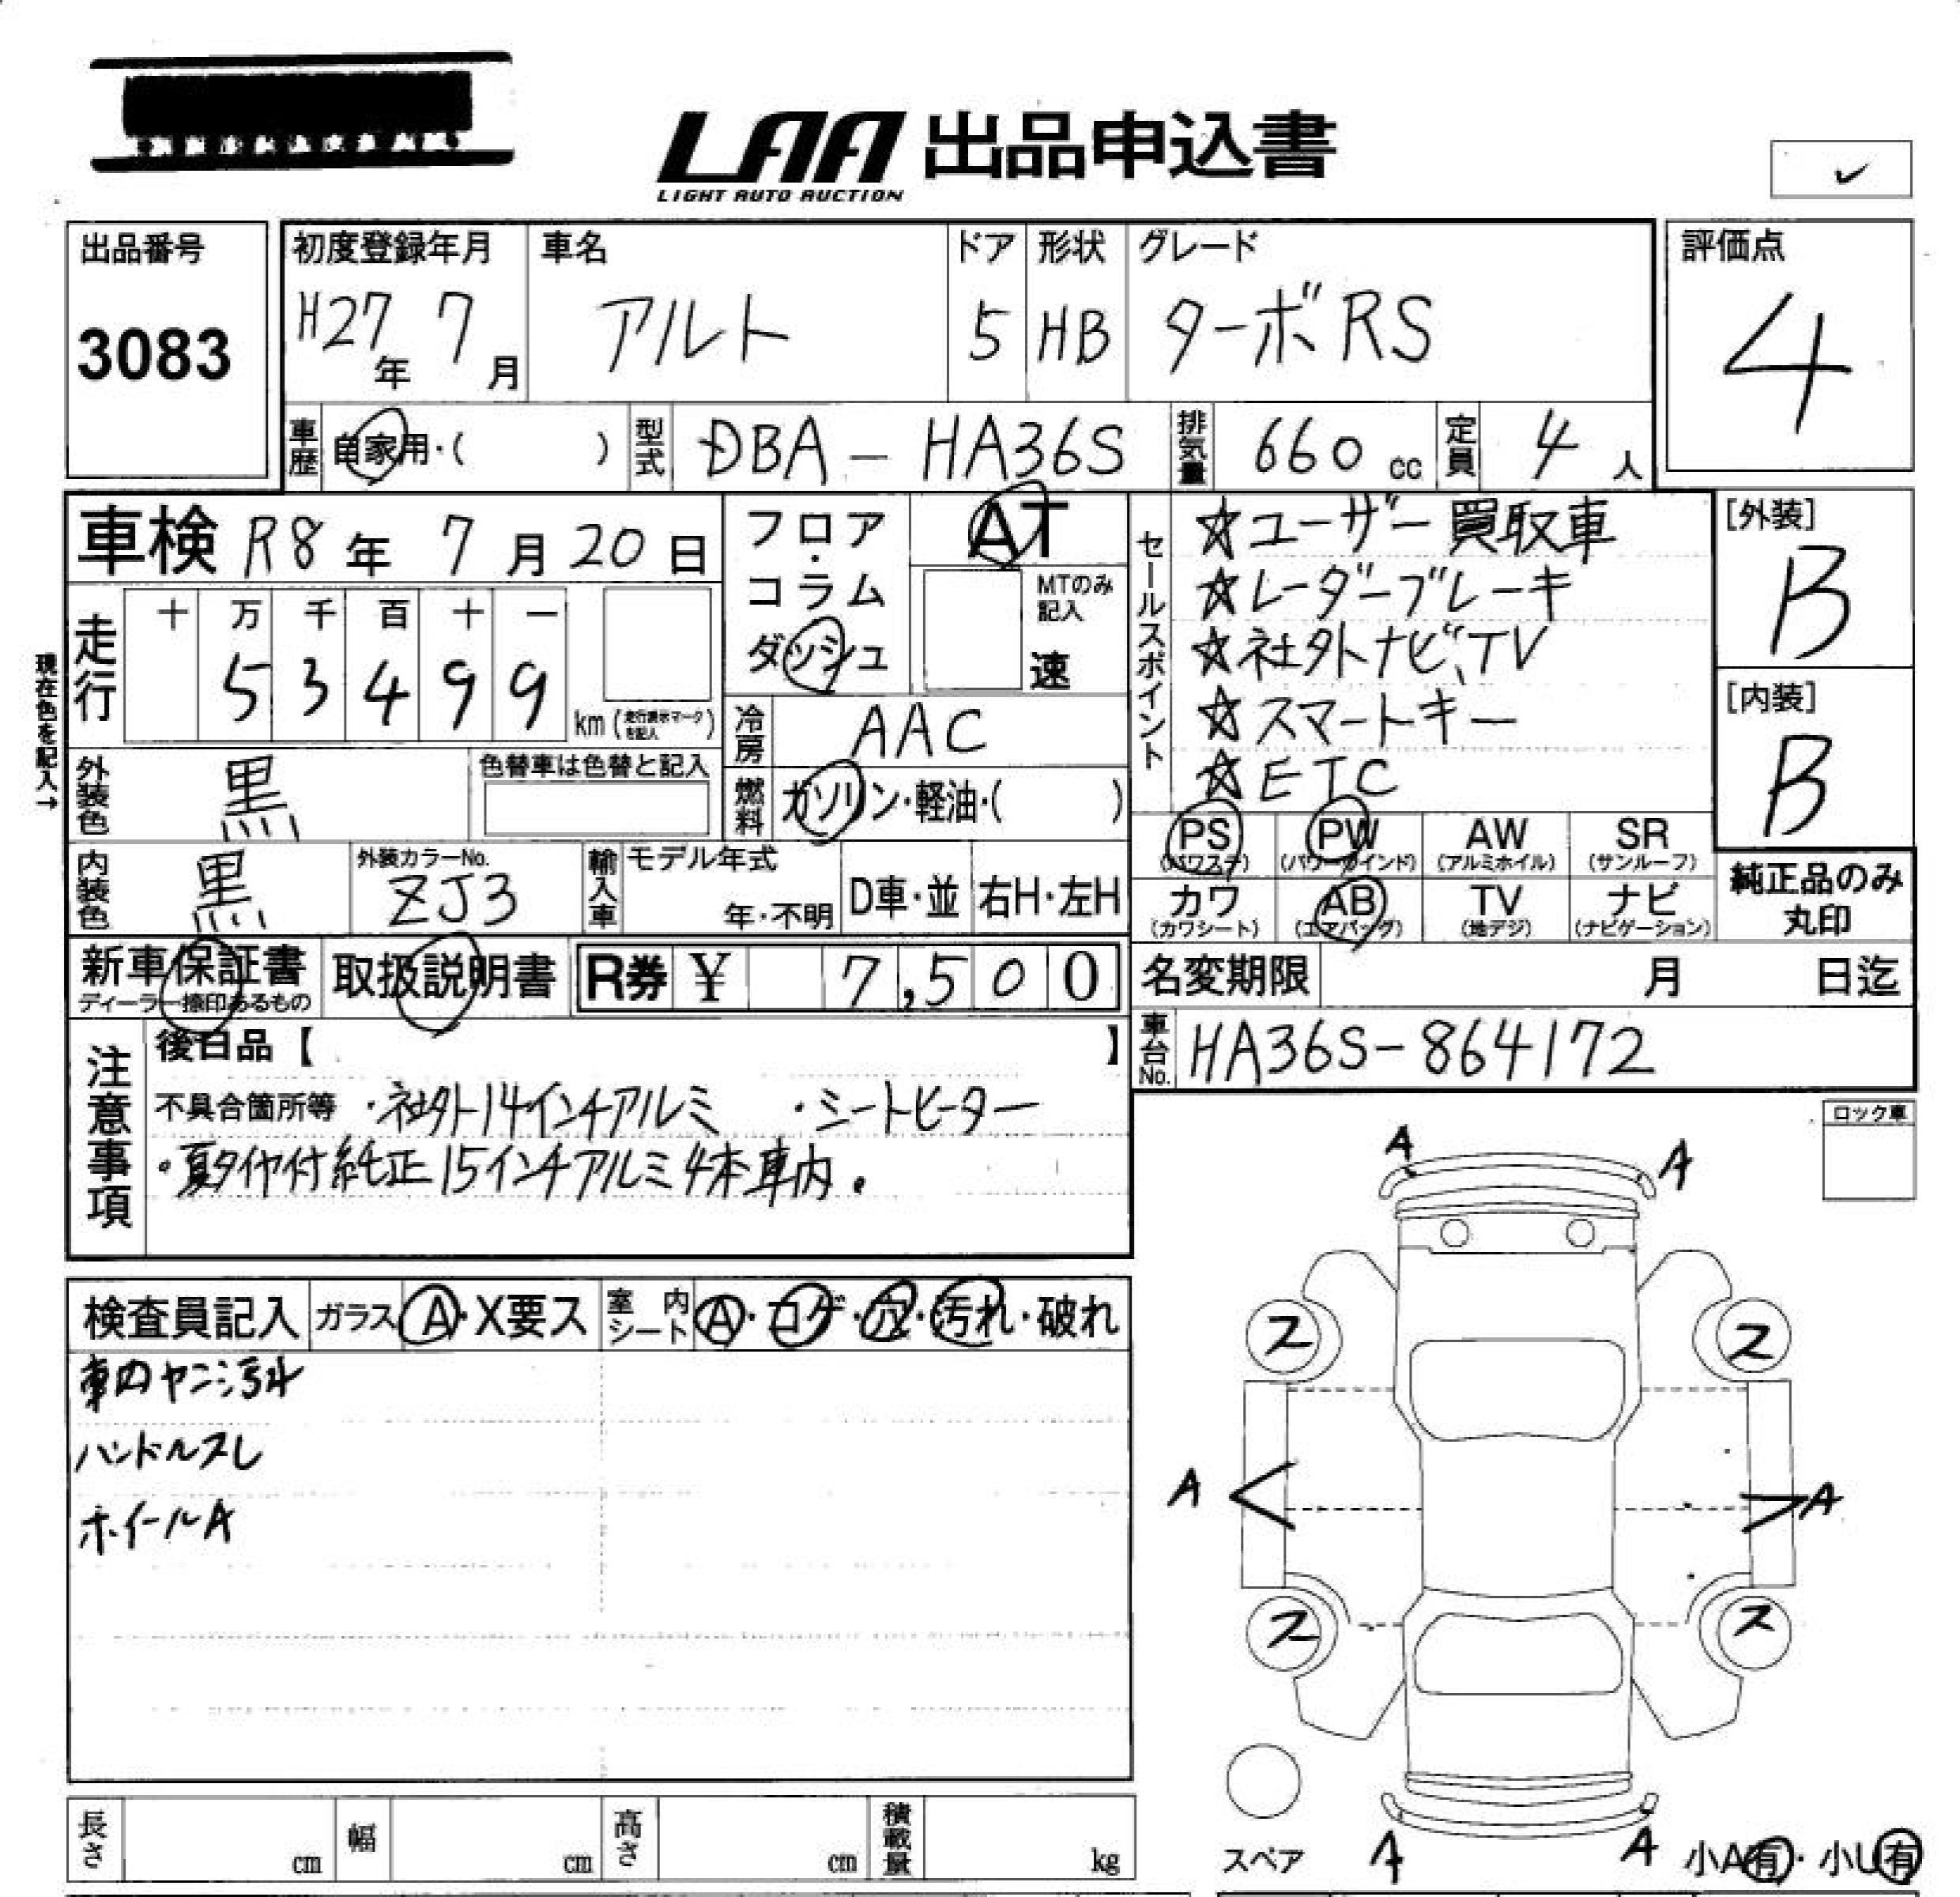 LAA 出品申込書
LIGHT AUTO AUCTION
出品番号
3083
初度登録年月
H27年 7月
車名
アルト
ドア
5
形状
HB
グレード
ターボRS
評価点
4
車歴 自家用・( )
型式 DBA-HA36S
排気量 660 cc
定員 4 人
車検 R8年 7月20日
走行
十 万 千 百 十 一
5 3 4 9 9
km (走行表示マークを記入)
現在色を記入→
外装色 黒
色替車は色替と記入
内装色 黒
外装カラーNo.
ZJ3
フロア・コラム
ダッシュ
AT
MTのみ記入
速
冷房 AAC
燃料 ガソリン・軽油・( )
輸入車
モデル年式
年・不明
D車・並
右H・左H
セールスポイント
☆ユーザー買取車
☆レーダーブレーキ
☆社外ナビ、TV
☆スマートキー
☆ETC
[外装]
B
[内装]
B
PS (パワステ)
PW (パワーウインド)
AW (アルミホイル)
SR (サンルーフ)
カワ (カワシート)
AB (エアバッグ)
TV (地デジ)
ナビ (ナビゲーション)
純正品のみ
丸印
新車保証書
ディーラー捺印あるもの
取扱説明書
R券 ¥ 7,500
名変期限 月 日迄
車台No. HA36S-864172
注意事項
後日品【 】
不具合箇所等 ・社外14インチアルミ ・シートヒーター
・夏タイヤ付純正15インチアルミ4本車内。
ロック車
検査員記入
ガラス A・X要ス
室内シート A・コゲ・穴・汚れ・破れ
車内ヤニ汚れ
ハンドルスレ
ホイールA
A A
ス ス
A A
ス ス
スペア
A A
小A有・小U有
長さ cm
幅 cm
高さ cm
積載量 kg